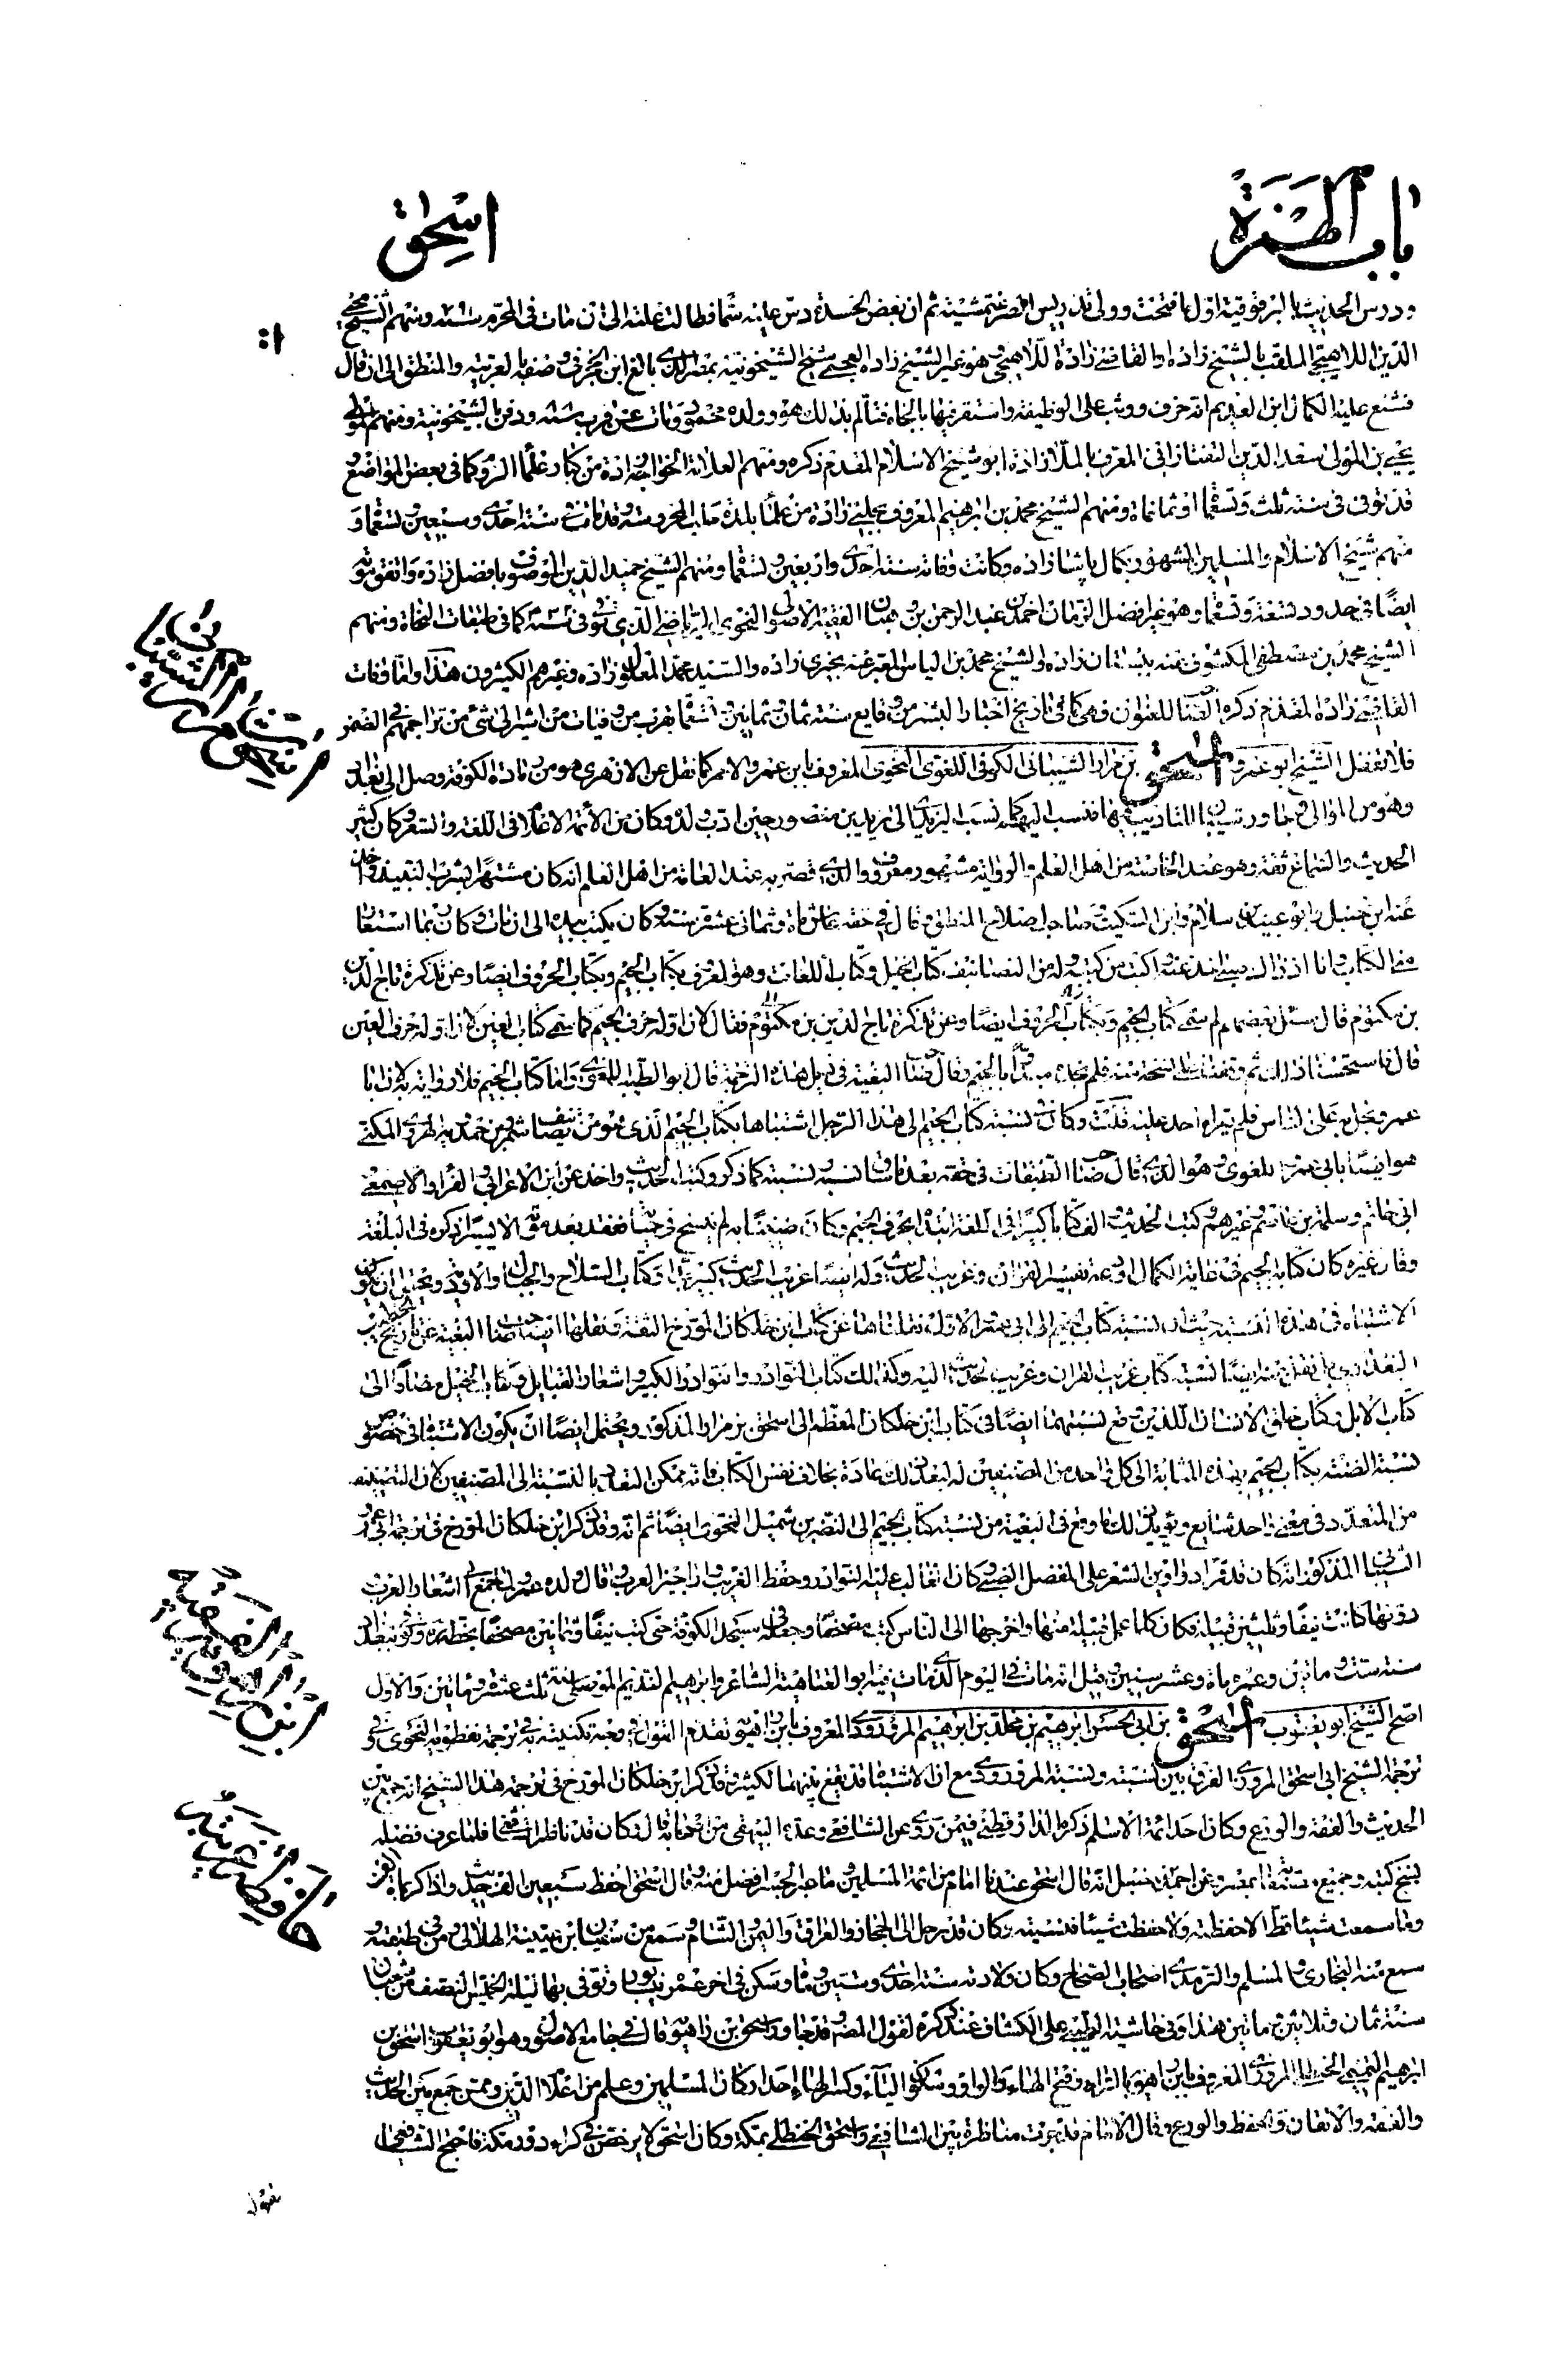 باب الهمزة
اسحق
ودرس الحديث بالبرقوقية اول ما فتحت وولى تدريس الصرغتمشية ثم ان بعض الحسدة دس عليه سما فطالت علته الى ان مات في المحرم سنه ومنهم الشيخ محيى
الدين اللاهيجي الملقب بالشيخ زاده والقاضى زاده اللاهيجى وهو غير الشيخ زاده العجمى شيخ الشيخونية بمصر الذى بالغ ابن حجر فى وصفه بالعربية والمنطق الى ان قال
فشنع عليه الكمال ابن العديم انه خرف ووثب على الوظيفة واستقر فيها بالجاه فتألم بذلك هو وولده محمود ومات عن قرب سنه ودفن بالشيخونية ومنهم المولى
يحيى بن المولى سعد الدين التفتازانى المعروف بالملازاده ابو شيخ الاسلام المقدم ذكره ومنهم العلامة الخواجه زاده من كبار علماء الروم كما فى بعض المواضع
قد توفى فى سنة ثلث وتسعين وثمانمائة ومنهم الشيخ محمد بن ابرهيم المعروف بجلبى زاده من علماء بلدة حلب المحروسة وقد مات سنة احدى وسبعين وتسعمائة و
منهم شيخ الاسلام والمسلمين المشهور بكمال پاشا زاده وكانت وفاته سنة احدى واربعين وتسعمائة ومنهم الشيخ حميد الدين الموصوف بافضل زاده واتفق موته
ايضا فى حدود تسعة وتسعمائة وهو غير افضل الزمان احمد بن عبد الرحمن بن وهبان الفقيه الاصولى النحوى الرياضى الذى توفى سنة كما فى طبقات النحاة ومنهم
الشيخ محمد بن مصطفى المكشوف عنه ببستان زاده والشيخ محمد بن الياس المعبر عنه بچوى زاده والسيد محمد المعلول زاده وغيرهم الكثيرون هذا واما وفات
القاضى زاده المقدم ذكره ايضا للعنوان فهى كما فى تاريخ اخبار البشر من وقايع سنة ثمان وثمانين وتسعمائة بقرب من وفيات من اشير الى شئ من تراجمهم فى الضمن
فلا تغفل الشيخ ابو عمرو اسحق بن مرار الشيبانى الكوفى اللغوى النحوى المعروف بابن عمرو الاحمر كما نقل عن الازهرى هو من رمادة الكوفة وصل الى بغداد
وهو من الموالى وجاور شيبان للتاديب فيها فنسب اليها كما نسب اليزيدى الى يزيد بن منصور حين ادب ولده وكان من الأئمة الاعلام فى اللغة والشعر وكان كثير
الحديث والسماع ثقة وهو عند الخاصة من اهل العلم والرواية مشهور معروف والذى قصر به عند العامة من اهل العلم انه كان مشتهرا بشرب النبيذ واخذ
عنه ابن حنبل وابو عبيد بن سلام وابن السكيت صاحب اصلاح المنطق وقال فى حقه عاش مائة وثمانى عشرة سنة وكان يكتب بيده الى ان مات وكان ربما استعار
منى الكتاب وانا اذ ذاك صبى اخذ عنه واكتب من كتبه وله من التصانيف كتاب الخيل وكتاب اللغات وهو المعروف بكتاب الجيم وبكتاب الحروف ايضا وعن تذكرة تاج الدين
بن مكتوم قال سئل بعضهم لم سمى كتاب الجيم وبكتاب الحروف ايضا وعن تذكرة تاج الدين بن مكتوم فقال لان اوله حرف الجيم كما سمى كتاب العين لان اوله حرف العين
قال فاستحسنا ذلك ثم وقفنا على نسخة منه فلم نجده مبدا بالجيم وقال صاحب البغية فى ذيل هذه الترجمة قال ابو الطيب اللغوى واما كتاب الجيم فلا رواية له لان ابا
عمرو بخل به على الناس فلم يقراه احد عليه قلت وكان نسبة كتاب الجيم الى هذا الرجل اشتباها بكتاب الجيم الذى هو من تصانيف شمر بن حمدويه الهروى المكنى
هو ايضا بابى عمرو اللغوى وهو الذى قال صاحب الطبقات فى حقه بعد ما نسبه نسبته كما ذكر وكتب الحديث واخذ عن ابن الاعرابى والفراء والاصمعى
ابى حاتم وسلمة بن عاصم وغيرهم وكتب الحديث والف كتابا كبيرا فى اللغة ابتداه بحرف الجيم وكان ضنينا به لم ينسخ فى حياته ففقد بعد موته الا يسيرا ذكره فى البلغة
وقال غيره كان كتابه الجيم فى غاية الكمال اودعه تفسير القران وغريب الحديث وله ايضا غريب الحديث كبير جدا وكتاب السلاح والجبال والاودية ويحتمل ان يكون
الاشتباه فى هذه النسبة حيث ان نسبة كتاب الجيم الى ابى عمرو الاول نقلناها عن كتاب ابن خلكان المورخ الثقة ونقلها ايضا صاحب البغية عن تاريخ الخطيب
البغدادى مع انه نقل عنه ايضا نسبة كتاب غريب القران وغريب الحديث اليه وكذلك كتاب النوادر والنوادر الكبير واشعار القبايل وكتاب الخيل مضافا الى
كتاب الابل وكتاب خلق الانسان اللذين وقع نسبتهما ايضا فى كتاب ابن خلكان المعظم الى اسحق بن مرار المذكور ويحتمل ايضا ان يكون الاشتباه فى خصوص
نسبة الضنة بكتاب الجيم بهذه المثابة الى كل واحد من المصنفين له لبعد ذلك عادة بخلاف نفس الكتاب فانه ممكن التعدد بالنسبة الى المصنفين لان التصنيف
من المتعدد فى معنى واحد شايع ويؤيد ذلك ما وقع فى البغية من نسبة كتاب الجيم الى النضر بن شميل النحوى ايضا ثم انه وقد ذكر ابن خلكان المورخ فى ترجمة ابى عمرو
الشيبانى المذكور انه كان قد قرا دواوين الشعر على المفضل الضبى وكان الغالب عليه النوادر وحفظ الغريب واراجيز العرب وقال ولده عمرو لما جمع ابى اشعار العرب
دونها كانت نيفا وثمانين قبيلة فكان كلما عمل قبيلة منها واخرجها الى الناس كتب مصحفا وجعله فى مسجد الكوفة حتى كتب نيفا وثمانين مصحفا بخطه وتوفى ببغداد
سنة ست ومأتين وعمره مأة وعشر سنين وقيل انه مات فى اليوم الذى مات فيه ابو العتاهية الشاعر وابرهيم النديم الموصلى سنة ثلث عشرة ومأتين والاول
اصح الشيخ ابو يعقوب اسحق بن ابى الحسن ابرهيم بن مخلد بن ابرهيم المروزى المعروف بابن راهويه تقدم القول فى وجه تكنيته به فى ترجمة نفطويه النحوى وفى
ترجمة الشيخ ابى اسحق المروزى الفرق بين نسبته ونسبة المروروذى مع ان الاشتباه قد يقع بينهما لكثير وقد ذكر ابن خلكان المورخ فى ترجمة هذا الشيخ انه جمع بين
الحديث والفقه والورع وكان احد ائمة الاسلام ذكره الدارقطنى فيمن روى عن الشافعى وعده البيهقى من اصحابه قال وكان قد ناظر الشافعى فلما عرف فضله
نسخ كتبه وجميع مصنفاته بمصر وعن احمد بن حنبل انه قال اسحق عندنا امام من ائمة المسلمين وما عبر الجسر افضل منه وقال اسحق احفظ سبعين الف حديث واذاكر بمائة الف
وما سمعت شيئا قط الا حفظته ولا حفظت شيئا فنسيته وكان قد رحل الى الحجاز والعراق واليمن والشام وسمع من سفيان ابن عيينة الهلالى ومن فى طبقته و
سمع منه البخارى والمسلم والترمذى اصحاب الصحاح وكان ولادته سنة احدى وستين ومائة وسكن فى اخر عمره نيسابور وتوفى بها ليلة الخميس النصف من شعبان
سنة ثمان وثلاثين ومأتين هذا وفى حاشية الطيبى على الكشاف عند ذكره لقول المض وقد جاور اسحق بن راهويه قال فى جامع الاصول وهو ابو يعقوب اسحق بن
ابرهيم التميمى الحنظلى المروزى المعروف بابن راهويه بالراء وفتح الهاء والواو وسكون الياء وكسر الهاء احد اركان المسلمين وعلم من اعلام الدين وممن جمع بين الحديث
والفقه والاتقان والحفظ والورع وقال الامام قد جرت مناظرة بين الشافعى واسحق الحنظلى بمكة وكان اسحق لا يرخص فى كراء دور مكة فاحتج الشافعى